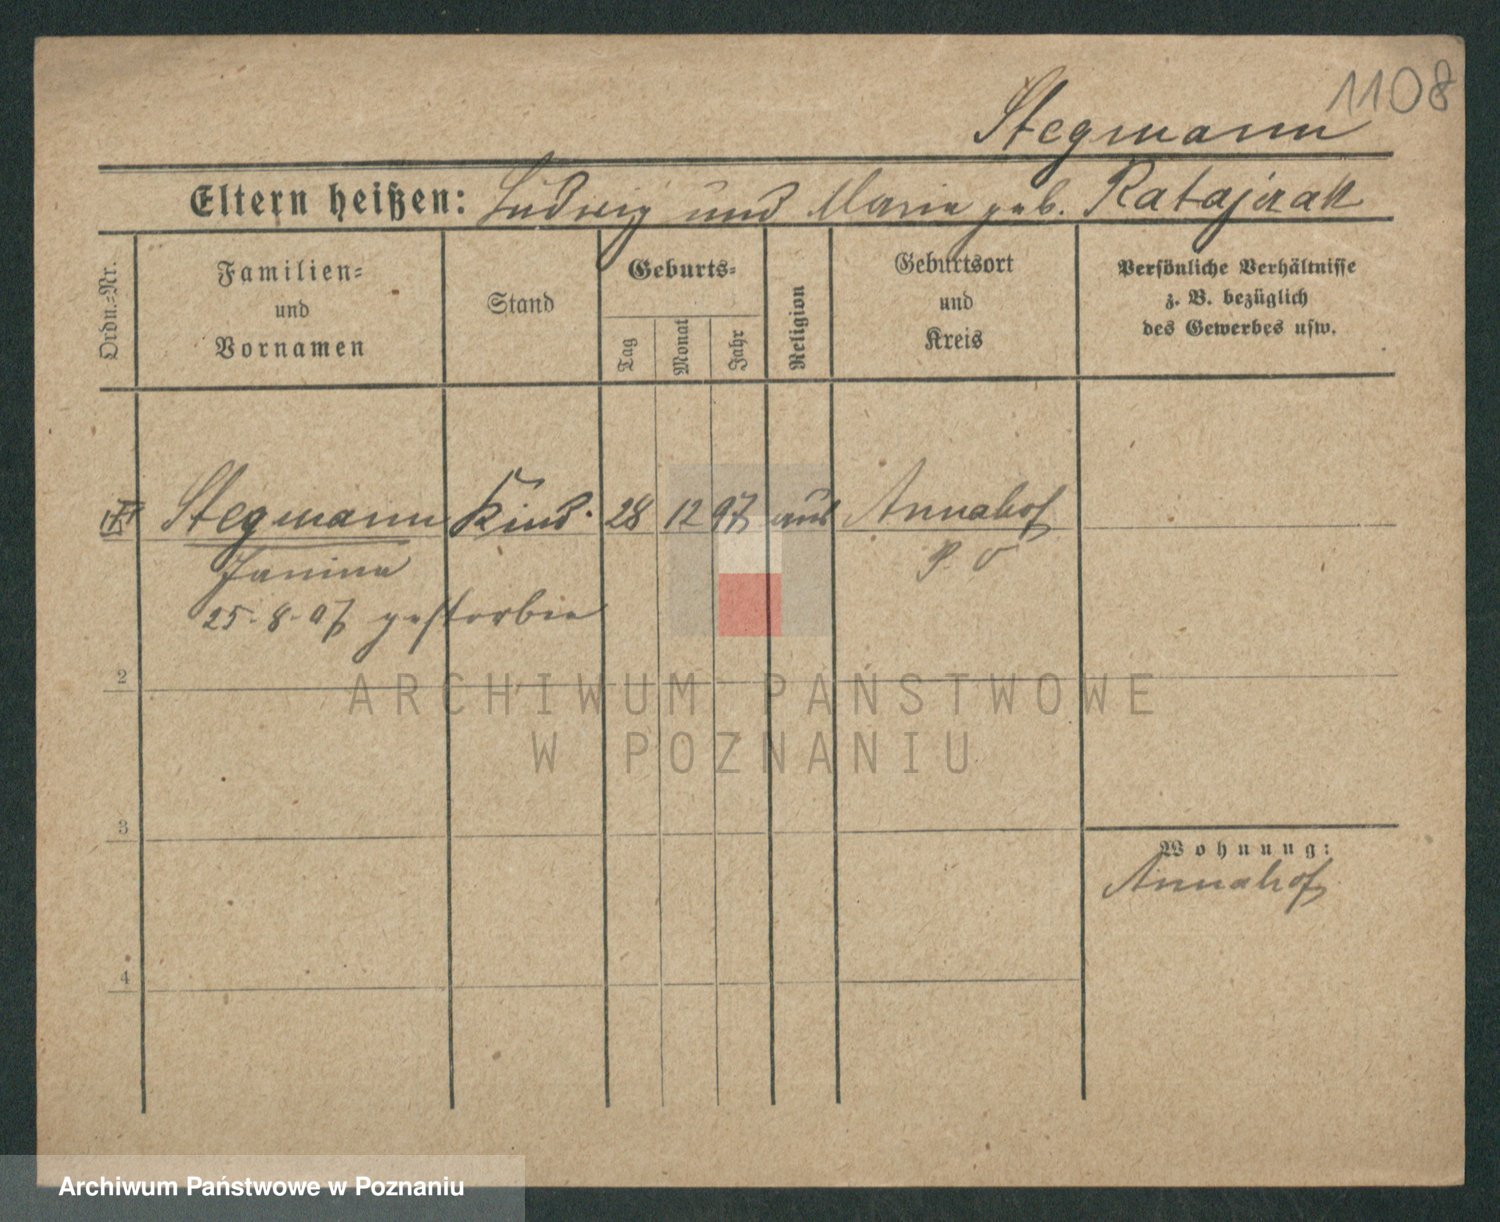 1108
Stegmann
Eltern heißen: Ludwig und Maria geb. Ratajczak
Ordn.=Nr.
Familien=
und
Vornamen
Stand
Geburts=
Tag
Monat
Jahr
Religion
Geburtsort
und
Kreis
Persönliche Verhältnisse
z. B. bezüglich
des Gewerbes usw.
Stegmann Kind. 28 12 97 Annahof
Janina P. O
25.8.97 gestorben
2
ARCHIWUM PAŃSTWOWE
W POZNANIU
3
Wohnung:
Annahof
4
Archiwum Państwowe w Poznaniu